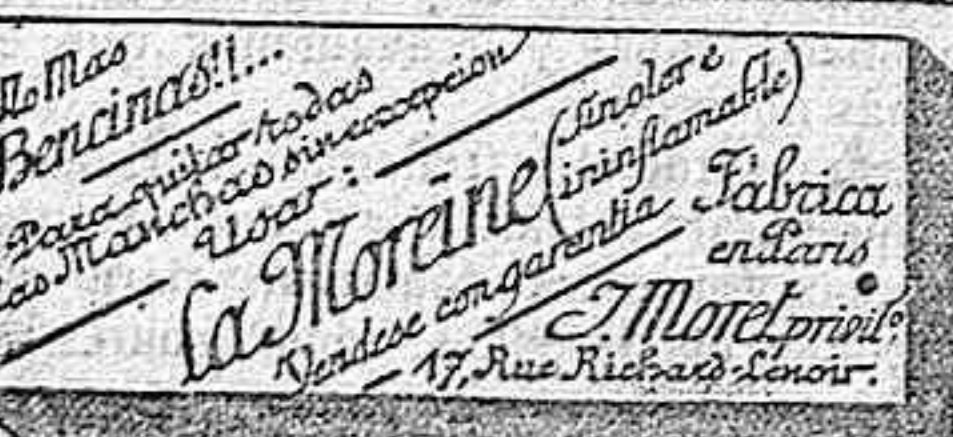 No Mas
Bencinas!!...
Para quitar todas
las Manchas sin excepcion
Usar:
La Moreïne (sin olor é
ininflamable)
Vendese con garantia
Fábrica
en Paris
J. Moret, privilº
17, Rue Richard-Lenoir.